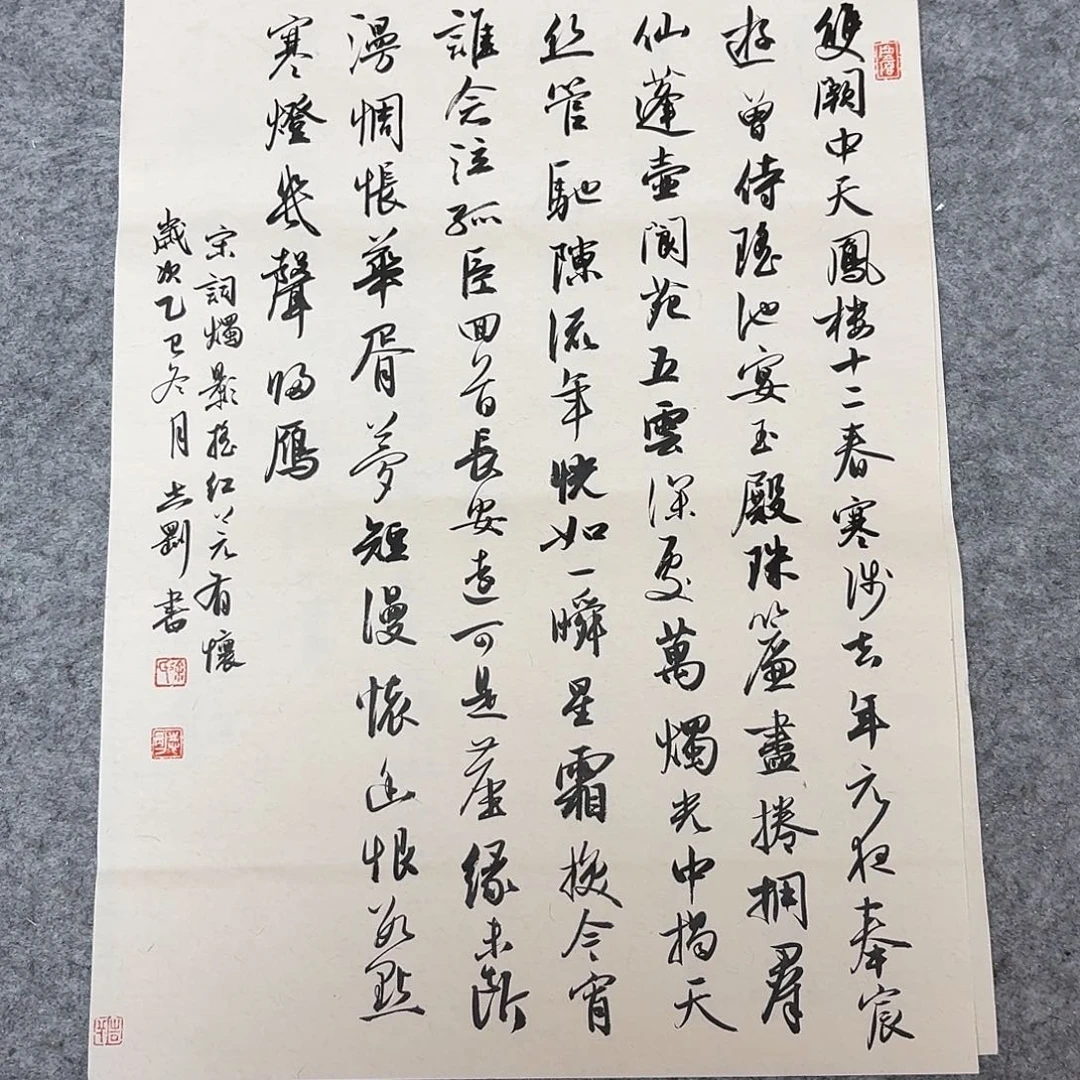 雙闕中天鳳樓十二春寒淺去年元夜奉宸
遊曾侍瑤池宴玉殿珠簾盡捲拥羣
仙蓬壺閬苑五雲深處萬燭光中揭天
丝管馳隙流年恍如一瞬星霜換今宵
誰念泣孤臣回首長安遠可是塵緣未斷
漫惆悵華胥夢短漫懷幽恨數點
寒燈幾聲歸雁
宋詞燭影搖紅上元有懷
歲次乙巳冬月志剛書